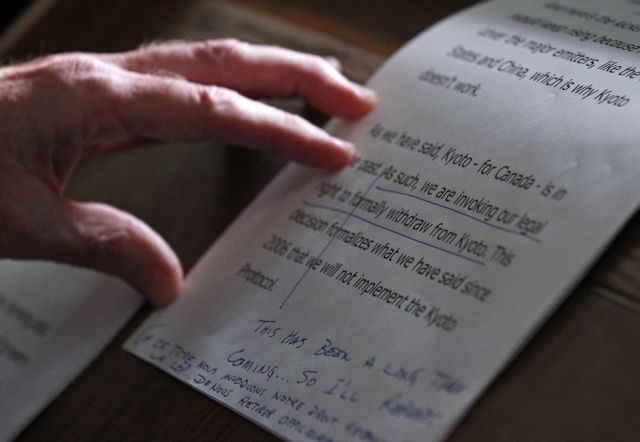 should keep rising because
cover the major emitters, like the
States and China, which is why Kyoto
doesn't work.
As we have said, Kyoto - for Canada - is in
the past. As such, we are invoking our legal
right to formally withdraw from Kyoto. This
decision formalizes what we have said since
2006 that we will not implement the Kyoto
Protocol.
THIS HAS BEEN A LONG TIME
COMING... SO I'LL REPEAT:
NOUS INVOQUONS NOTRE DROIT
LA LOI DE NOUS RETIRER